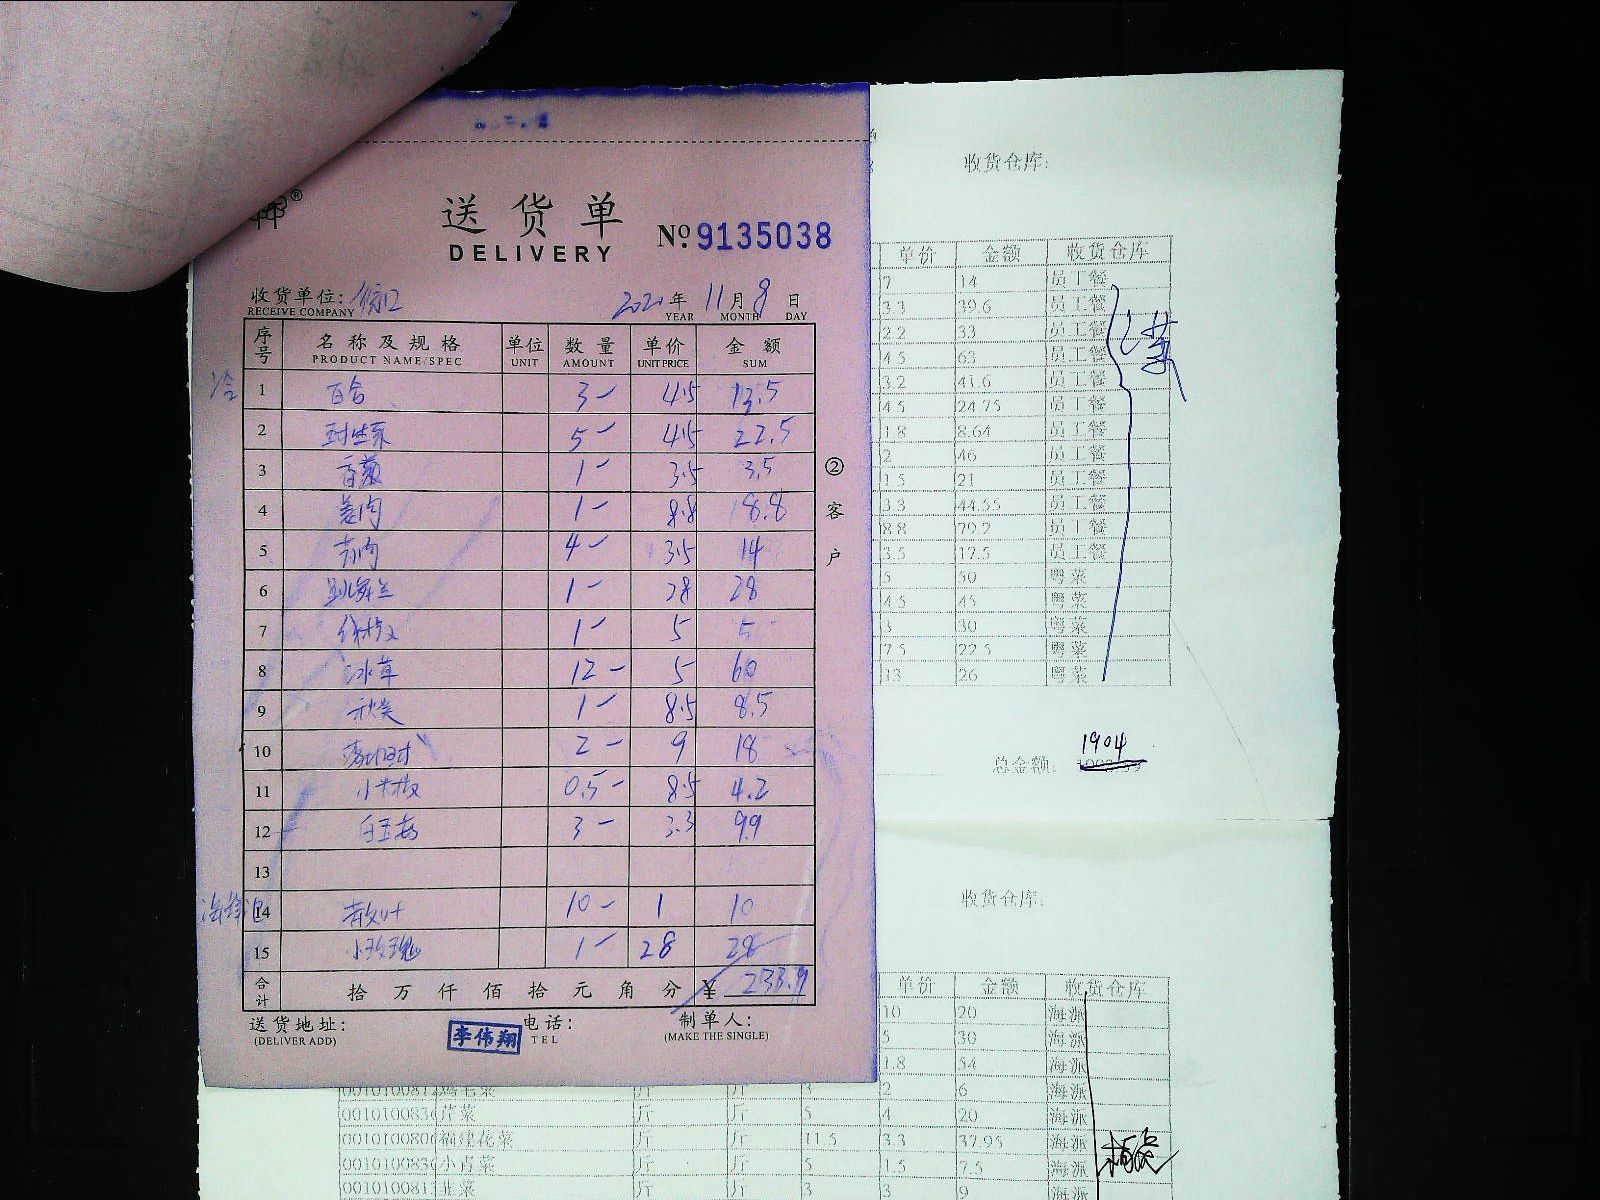 送货单
DELIVERY
№ 9135038
收货单位:
RECEIVE COMPANY
2020年 11月 8日
YEAR MONTH DAY
序号 名称及规格 单位 数量 单价 金额
PRODUCT NAME/SPEC UNIT AMOUNT UNIT PRICE SUM
冷 1 百合 3 4.5 13.5
2 5 4.5 22.5
3 香葱 1 3.5 3.5
4 姜肉 1 8.8 8.8
5 4 3.5 14
6 跳舞兰 1 28 28
7 1 5 5
8 冰草 12 5 60
9 1 8.5 8.5
10 2 9 18
11 小米椒 0.5 8.5 4.2
12 白玉菇 3 3.3 9.9
13
14 10 1 10
15 小玫瑰 1 28 28
合计 拾万仟佰拾元角分 ¥ 233.9
送货地址:
(DELIVER ADD)
李伟翔
电话:
TEL
制单人:
(MAKE THE SINGLE)
②客户
收货仓库:
单价 金额 收货仓库
7 14 员工餐
3.3 39.6 员工餐
2.2 33 员工餐
4.5 63 员工餐
3.2 41.6 员工餐
4.5 24.75 员工餐
1.8 8.64 员工餐
2 46 员工餐
1.5 21 员工餐
3.3 44.55 员工餐
8.8 79.2 员工餐
3.5 17.5 员工餐
5 50 粤菜
4.5 45 粤菜
3 30 粤菜
7.5 22.5 粤菜
13 26 粤菜
总金额: 1904
收货仓库:
单价 金额 收货仓库
10 20 海派
5 30 海派
1.8 54 海派
鸡毛菜 斤 斤 3 2 6 海派
芹菜 斤 斤 5 4 20 海派
福建花菜 斤 斤 11.5 3.3 37.95 海派
小青菜 斤 斤 5 1.5 7.5 海派
韭菜 斤 斤 3 3 9 海派